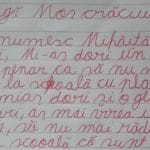 Moș crăciu
numesc Mihăiță
Mi-aș dori un
penar ca, să nu m
la școală cu pla
mias dori și o g
aș mai vrea u
să nu mai râd
școală că sunt